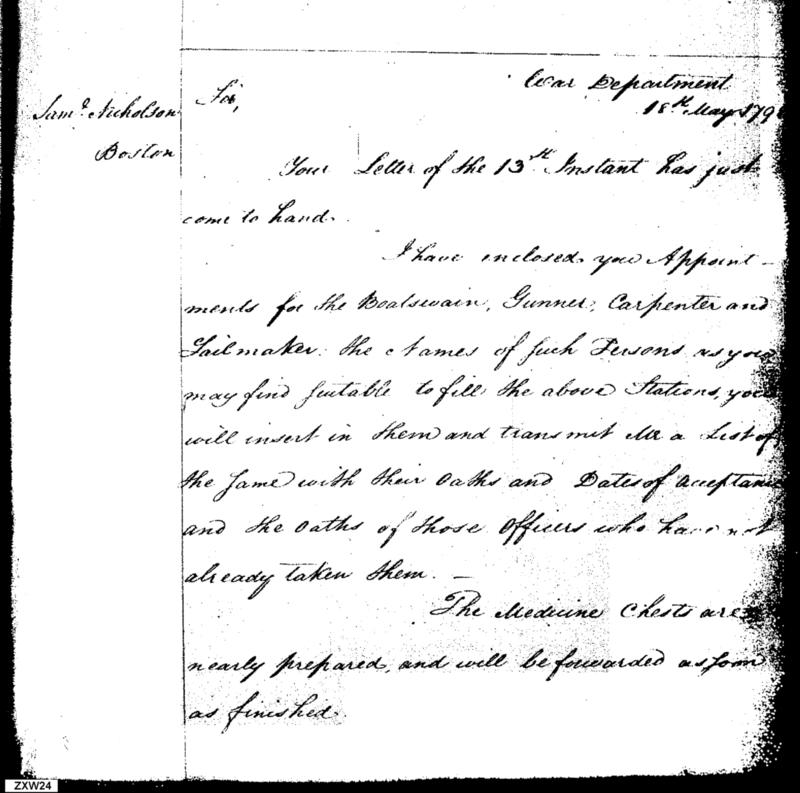 War Department
18th May 179
Saml Nicholson
Boston
Sir,
Your Letter of the 13th Instant has just
come to hand.
I have inclosed you Appoint-
ments for the Boatswain, Gunner, Carpenter and
Sailmaker. the Names of such Persons as you
may find suitable to fill the above Stations, you
will insert in them and transmit Me a List of
the same with their Oaths and Dates of acceptance
and the Oaths of those Officers who have not
already taken them. —
The Medicine Chests are
nearly prepared, and will be forwarded as soon
as finished.
ZXW24